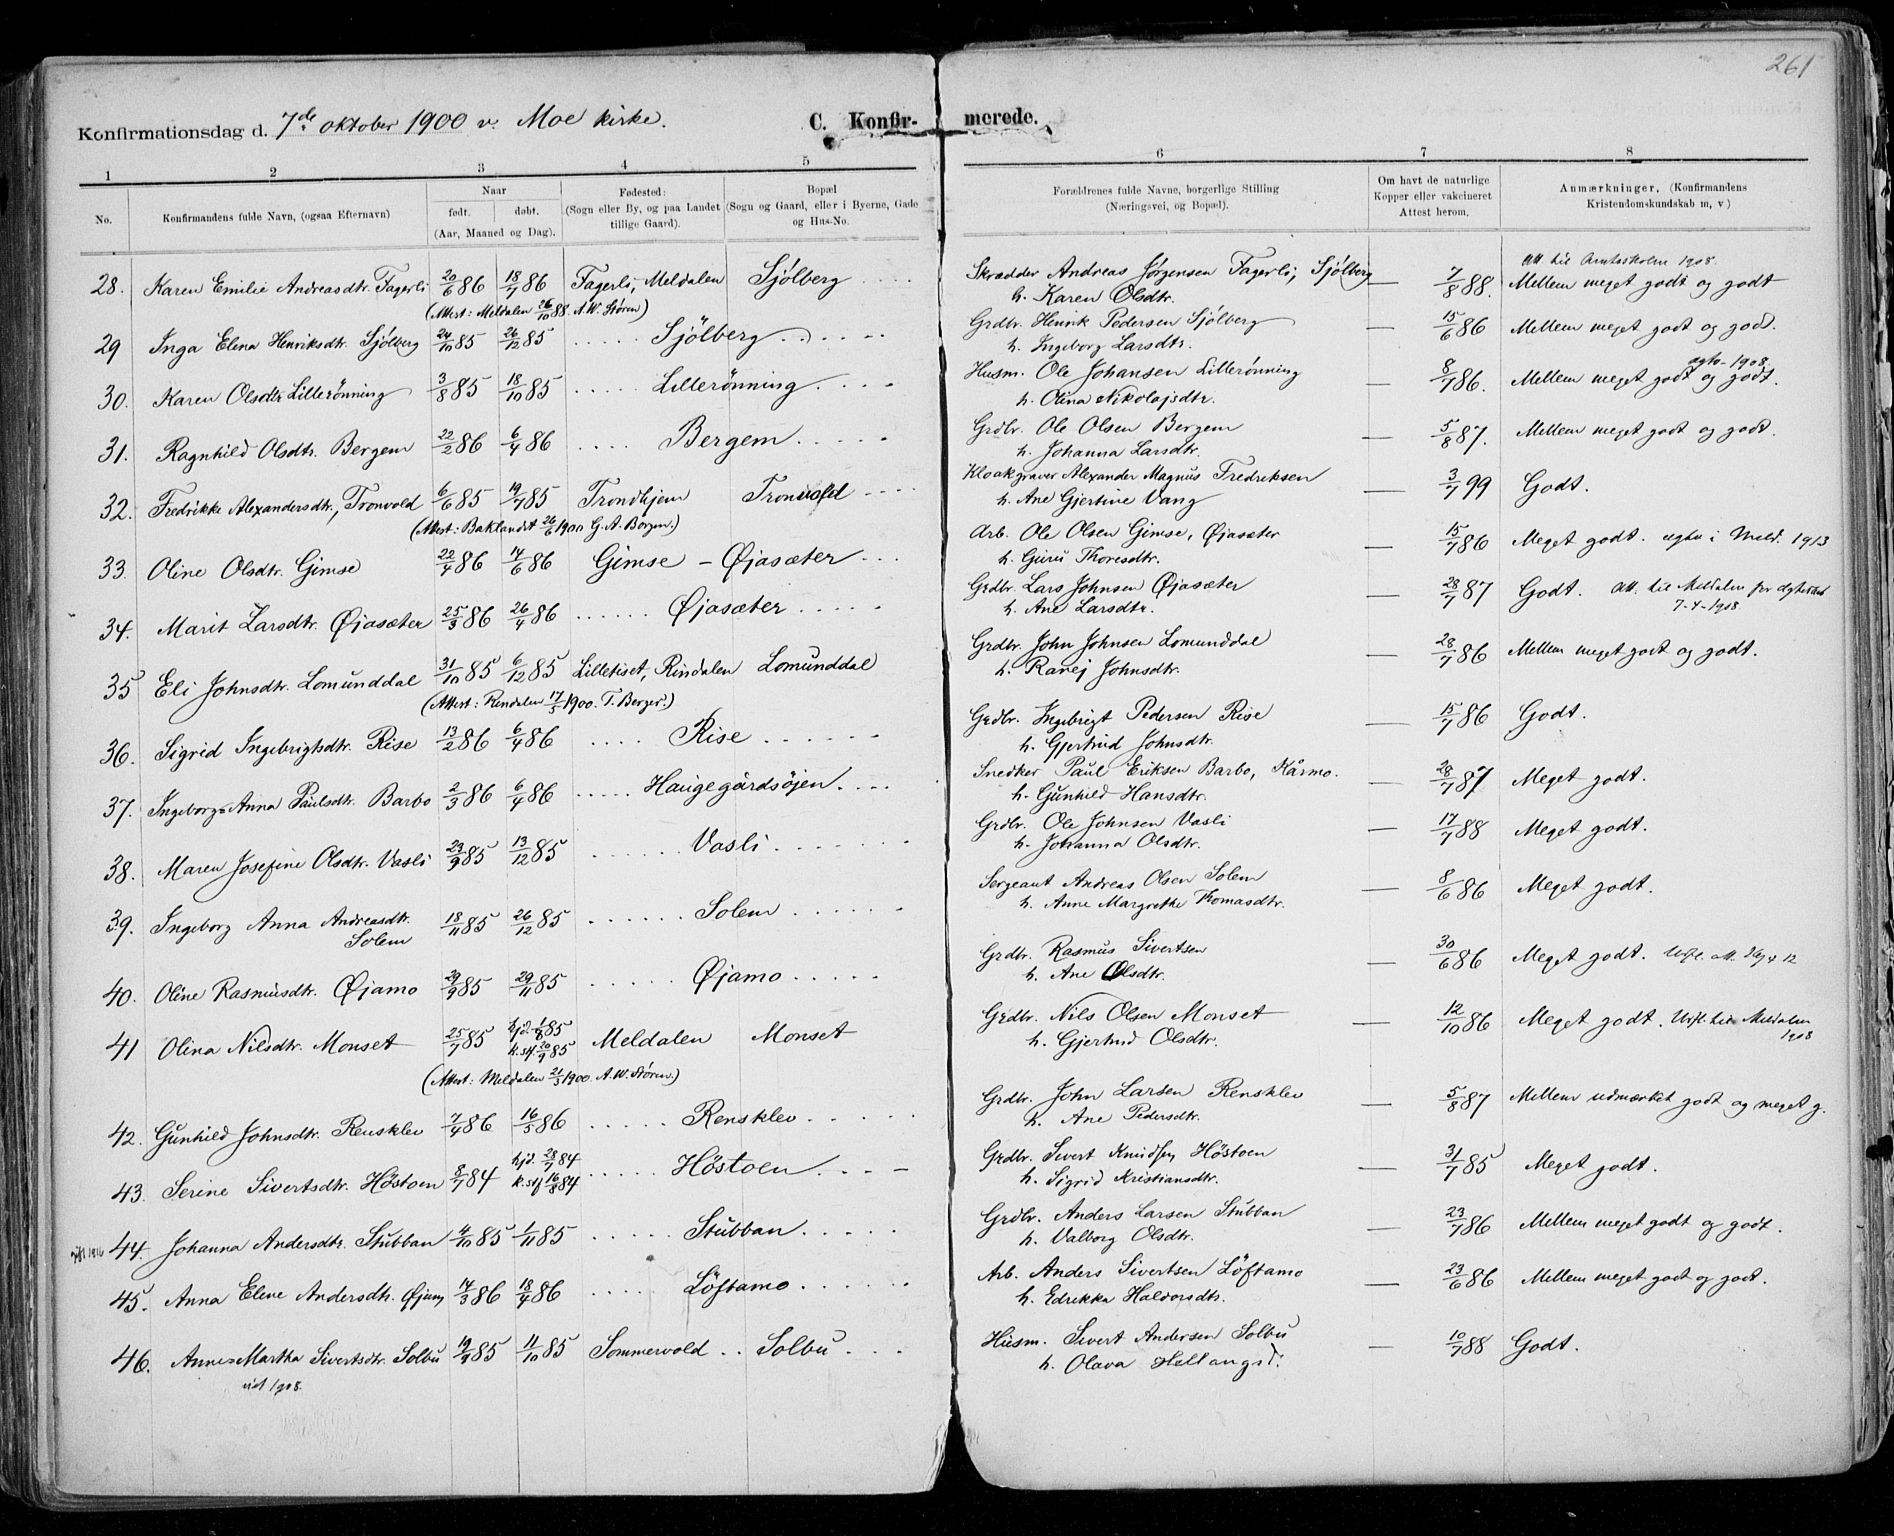 261
Konfirmationsdag d. 7de oktober 1900 v. Moe kirke. C. Konfir- merede.
1 2 3 4 5 6 7 8
No. Konfirmandens fulde Navn, (ogsaa Efternavn) Naar født. døbt. (Aar, Maaned og Dag). Fødested: (Sogn eller By, og paa Landet tillige Gaard). Bopæl (Sogn og Gaard, eller i Byerne, Gade og Hus-No. Forældrenes fulde Navne, borgerlige Stilling (Næringsvei, og Bopæl). Om havt de naturlige Kopper eller vakcineret Attest herom. Anmærkninger, (Konfirmandens Kristendomskundskab m, v)
28. Karen Emilie Andreasdtr. Fagerli 20/6 86 18/7 86 Fagerli, Meldalen Sjølberg Skrædder Andreas Jørgensen Fagerli, Sjølberg — 7/8 88. Att. til Amtsskolen 1908.
(Attest: Meldalen 26/10 88. A.W. Støren) h. Karen Olsdtr. Mellem meget godt og godt
29 Inga Elina Henriksdtr. Sjølberg 24/10 85 26/12 85 ..... Sjölberg ..... Grdbr. Henrik Pedersen Sjølberg — 15/6 86 Mellem meget godt og godt.
h. Ingeborg Larsdtr.
30. Karen Olsdtr. Lillerønning 3/8 85 18/10 85 .... Lillerönning. ... Husm. Ole Johansen Lillerønning — 8/7 86. Mellem meget godt og godt. 1908
h. Olina Nikolajsdtr.
31. Ragnhild Olsdtr. Bergem 22/2 86 6/4 86 .... Bergem ..... Grdbr. Ole Olsen Bergem — 5/8 87. Mellem meget godt og godt.
h. Johanna Larsdtr.
32. Fredrikke Alexandersdtr., Tronvold 6/6 85 19/7 85 Trondhjem Tronvold .... Kloakgraver Alexander Magnus Fredriksen — 3/7 99 Godt.
(Attest: Baklandet 26/6 1900 G.A. Borgen.) h. Ane Gjertine Vang
33. Oline Olsdtr. Gimse 22/4 86 14/6 86 Gimse – Øjasæter ... Arb. Ole Olsen Gimse, Øjasæter — 15/7 86 Meget godt. i Meld. 1913
h. Guru Thoresdtr.
34. Marit Larsdtr. Øjasæter 25/3 86 26/4 86 ...... Øjasæter ..... Grdbr. Lars Johnsen Øjasæter — 28/7 87 Godt. Att. til Meldalen for
h. Ane Larsdtr. 7-4-1908
35 Eli Johnsdtr. Lomunddal 31/10 85 6/12 85 Lilletiset, Rindalen Lomunddal Grdbr. John Johnsen Lomunddal — 28/7 86 Mellem meget godt og godt.
(Attest: Rindalen 17/5 1900. T. Berger.) h. Ranej Johnsdtr.
36. Sigrid Ingebrigtsdtr. Rise 13/2 86 6/4 86 .... Rise ...... Grdbr. Ingebrigt Pedersen Rise — 15/7 86 Godt.
h. Gjertrud Johnsdtr.
37. Ingeborg-Anna Paulsdtr. Barbo 2/3 86 6/4 86 ..... Haugegårdsöjen. ... Snedker Paul Eriksen Barbo, Kårmo. — 28/7 87 Meget godt.
h. Gunhild Hansdtr.
38. Maren Josefine Olsdtr. Vasli 23/9 85 13/12 85 ...... Vasli ...... Grdbr. Ole Johnsen Vasli — 17/7 88 Meget godt.
h. Johanna Olsdtr.
39. Ingeborg Anna Andreasdtr. 18/11 85 26/12 85 ...... Solem ...... Sergeant Andreas Olsen Solem — 8/6 86 Meget godt.
Solem h. Anne Margrethe Thomasdtr.
40. Oline Rasmusdtr. Øjamo 29/9 85 29/11 85 ...... Øjamo ..... Grdbr. Rasmus Sivertsen 30/6 86 Meget godt.
h. Ane Olsdtr.
41 Olina Nilsdtr. Monset 25/7 85 hjd. 1/8 85 Meldalen Monset Grdbr. Nils Olsen Monset — 12/10 86 Meget godt. til Meldalen
k. stf. 20/9 85 h. Gjertrud Olsdtr. 1908
(Attest: Meldalen 21/5 1900. A.W. Støren.)
42. Gunhild Johnsdtr. Rensklev 7/4 86 16/5 86 ..... Rensklev ... Grdbr. John Larsen Rensklev — 5/8 87 Mellem udmærket godt og meget g.
h. Ane Pedersdtr.
43. Serine Sivertsdtr. Höstoen 8/7 84 hjd. 28/7 84 ..... Höstoen .... Grdbr. Sivert Knudsen Höstoen — 31/7 85 Meget godt.
k. stf 16/8 84 h. Sigrid Kristiansdtr.
44. Johanna Andersdtr. Stubban 4/10 85 1/11 85 ..... Stubban ..... Grdbr. Anders Larsen Stubban — 23/7 86 Mellem meget godt og godt.
h. Valborg Olsdtr.
45. Anna Eline Andersdtr. 14/3 86 18/4 86 ..... Löftamo ..... Arb. Anders Sivertsen Löftamo — 23/6 86 Mellem meget godt og godt.
h. Edrikka Haldorsdtr.
46. Anne-Martha Sivertsdtr. Solbu 19/9 85 11/10 85 Sommervold .. Solbu ... Husm. Sivert Andersen Solbu — 10/7 88 Godt.
1908. h. Olava